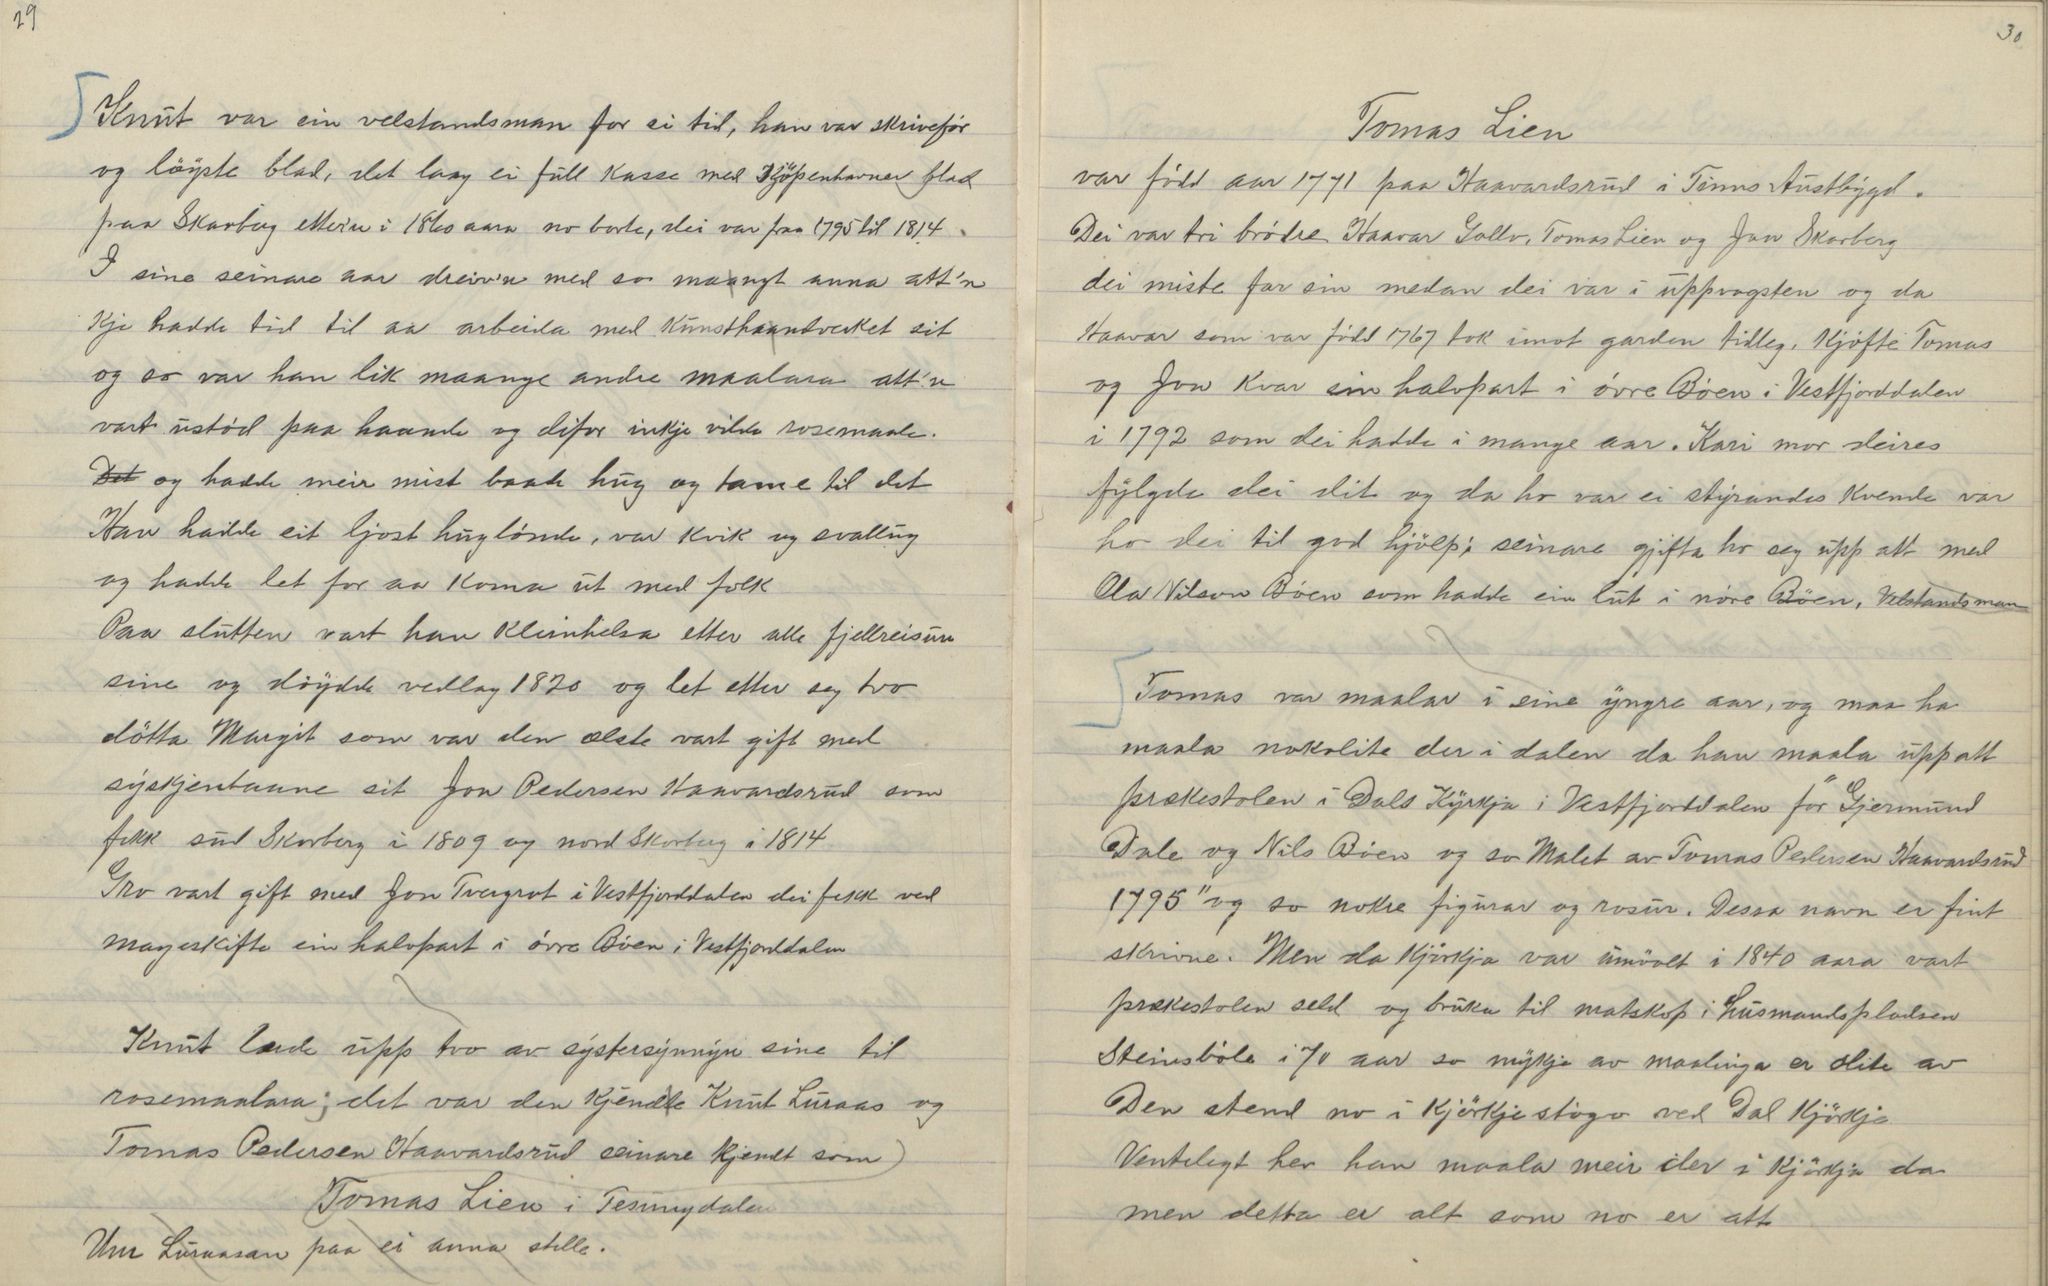 29
Knut var ein velstandsman for si tid, han var skrivefør
og löyste blad, det laag ei full kasse med Kjöpenhavner blad
paa Skarberg etter'n i 1860 aara no borte, dei var fraa 1795 til 1814.
I sine seinare aar dreiv'n med so maangt anna att'n
kje hadde tid til aa arbeida med kunsthaandverket sit
og so var han lik maange andre maalara att'n
vart ustød paa haande og difor inkje vilde rosemaale.
Det og hadde meir mist baade hug og tame til det
Han hadde eit ljost huglønde, var kvik og svallug
og hadde let for aa koma ut med folk
Paa slutten vart han kleinhelsa etter alle fjellreisun
sine og døydde vedlag 1820 og let etter seg tvo
dötta Margit som var den ælste vart gift med
syskjentaane sit Jon Pedersen Haavardsrud som
fekk sud Skarberg i 1809 og nord Skarberg i 1814
Gro vart gift med Jon Tvergrot i Vestfjorddalen dei fekk ved
mageskifte ein halvpart i övre Böen i Vestfjorddalen
Knut lærde upp tvo av systersynnyn sine til
rosemaalara; det var den kjendte Knut Luraas og
Tomas Pedersen Haavardsrud seinare kjendt som
Tomas Lien i Tesungdalen
Um Luraasan paa ei anna stelle.
30
Tomas Lien
var född aar 1771 paa Haavardsrud i Tinns Austbygd.
Dei var tri brödre Haavar Gollv, Tomas Lien og Jon Skarberg
dei miste far sin medan dei var i uppvagsten og da
Haavar som var född 1767 tok imot garden tidleg, kjöfte Tomas
og Jon kvar sin halvpart i övre Böen i Vestfjorddalen
i 1792 som dei hadde i mange aar. Kari mor deires
fylgde dei dit og da ho var ei styrandes kvende var
ho dei til god hjölp; seinare gjifta ho seg upp att med
Ola Nilson Böen som hadde ein lut i nöre Böen, Velstandsman
Tomas var maalar i sine yngre aar, og maa ha
maala nokolite der i dalen da han maala upp att
prækestolen i Dals Kyrkja i Vestfjorddalen "för Gjermund
Dale og Nils Böen og so Malet av Tomas Pedersen Haavardsrud
1795" og so nokre figurar og rosur. Dessa navn er fint
skrivne. Men da Kjörkja var umvölt i 1840 aara vart
prækestolen seld og bruka til matskap i husmandspladsen
Steinsböle i 70 aar so mykje av maalinga er slite av
Den stend no i Kjörkjestogo ved Dal Kjörkje
Venteligt her han maala meir der i Kjörkja da
men detta er alt som no er att